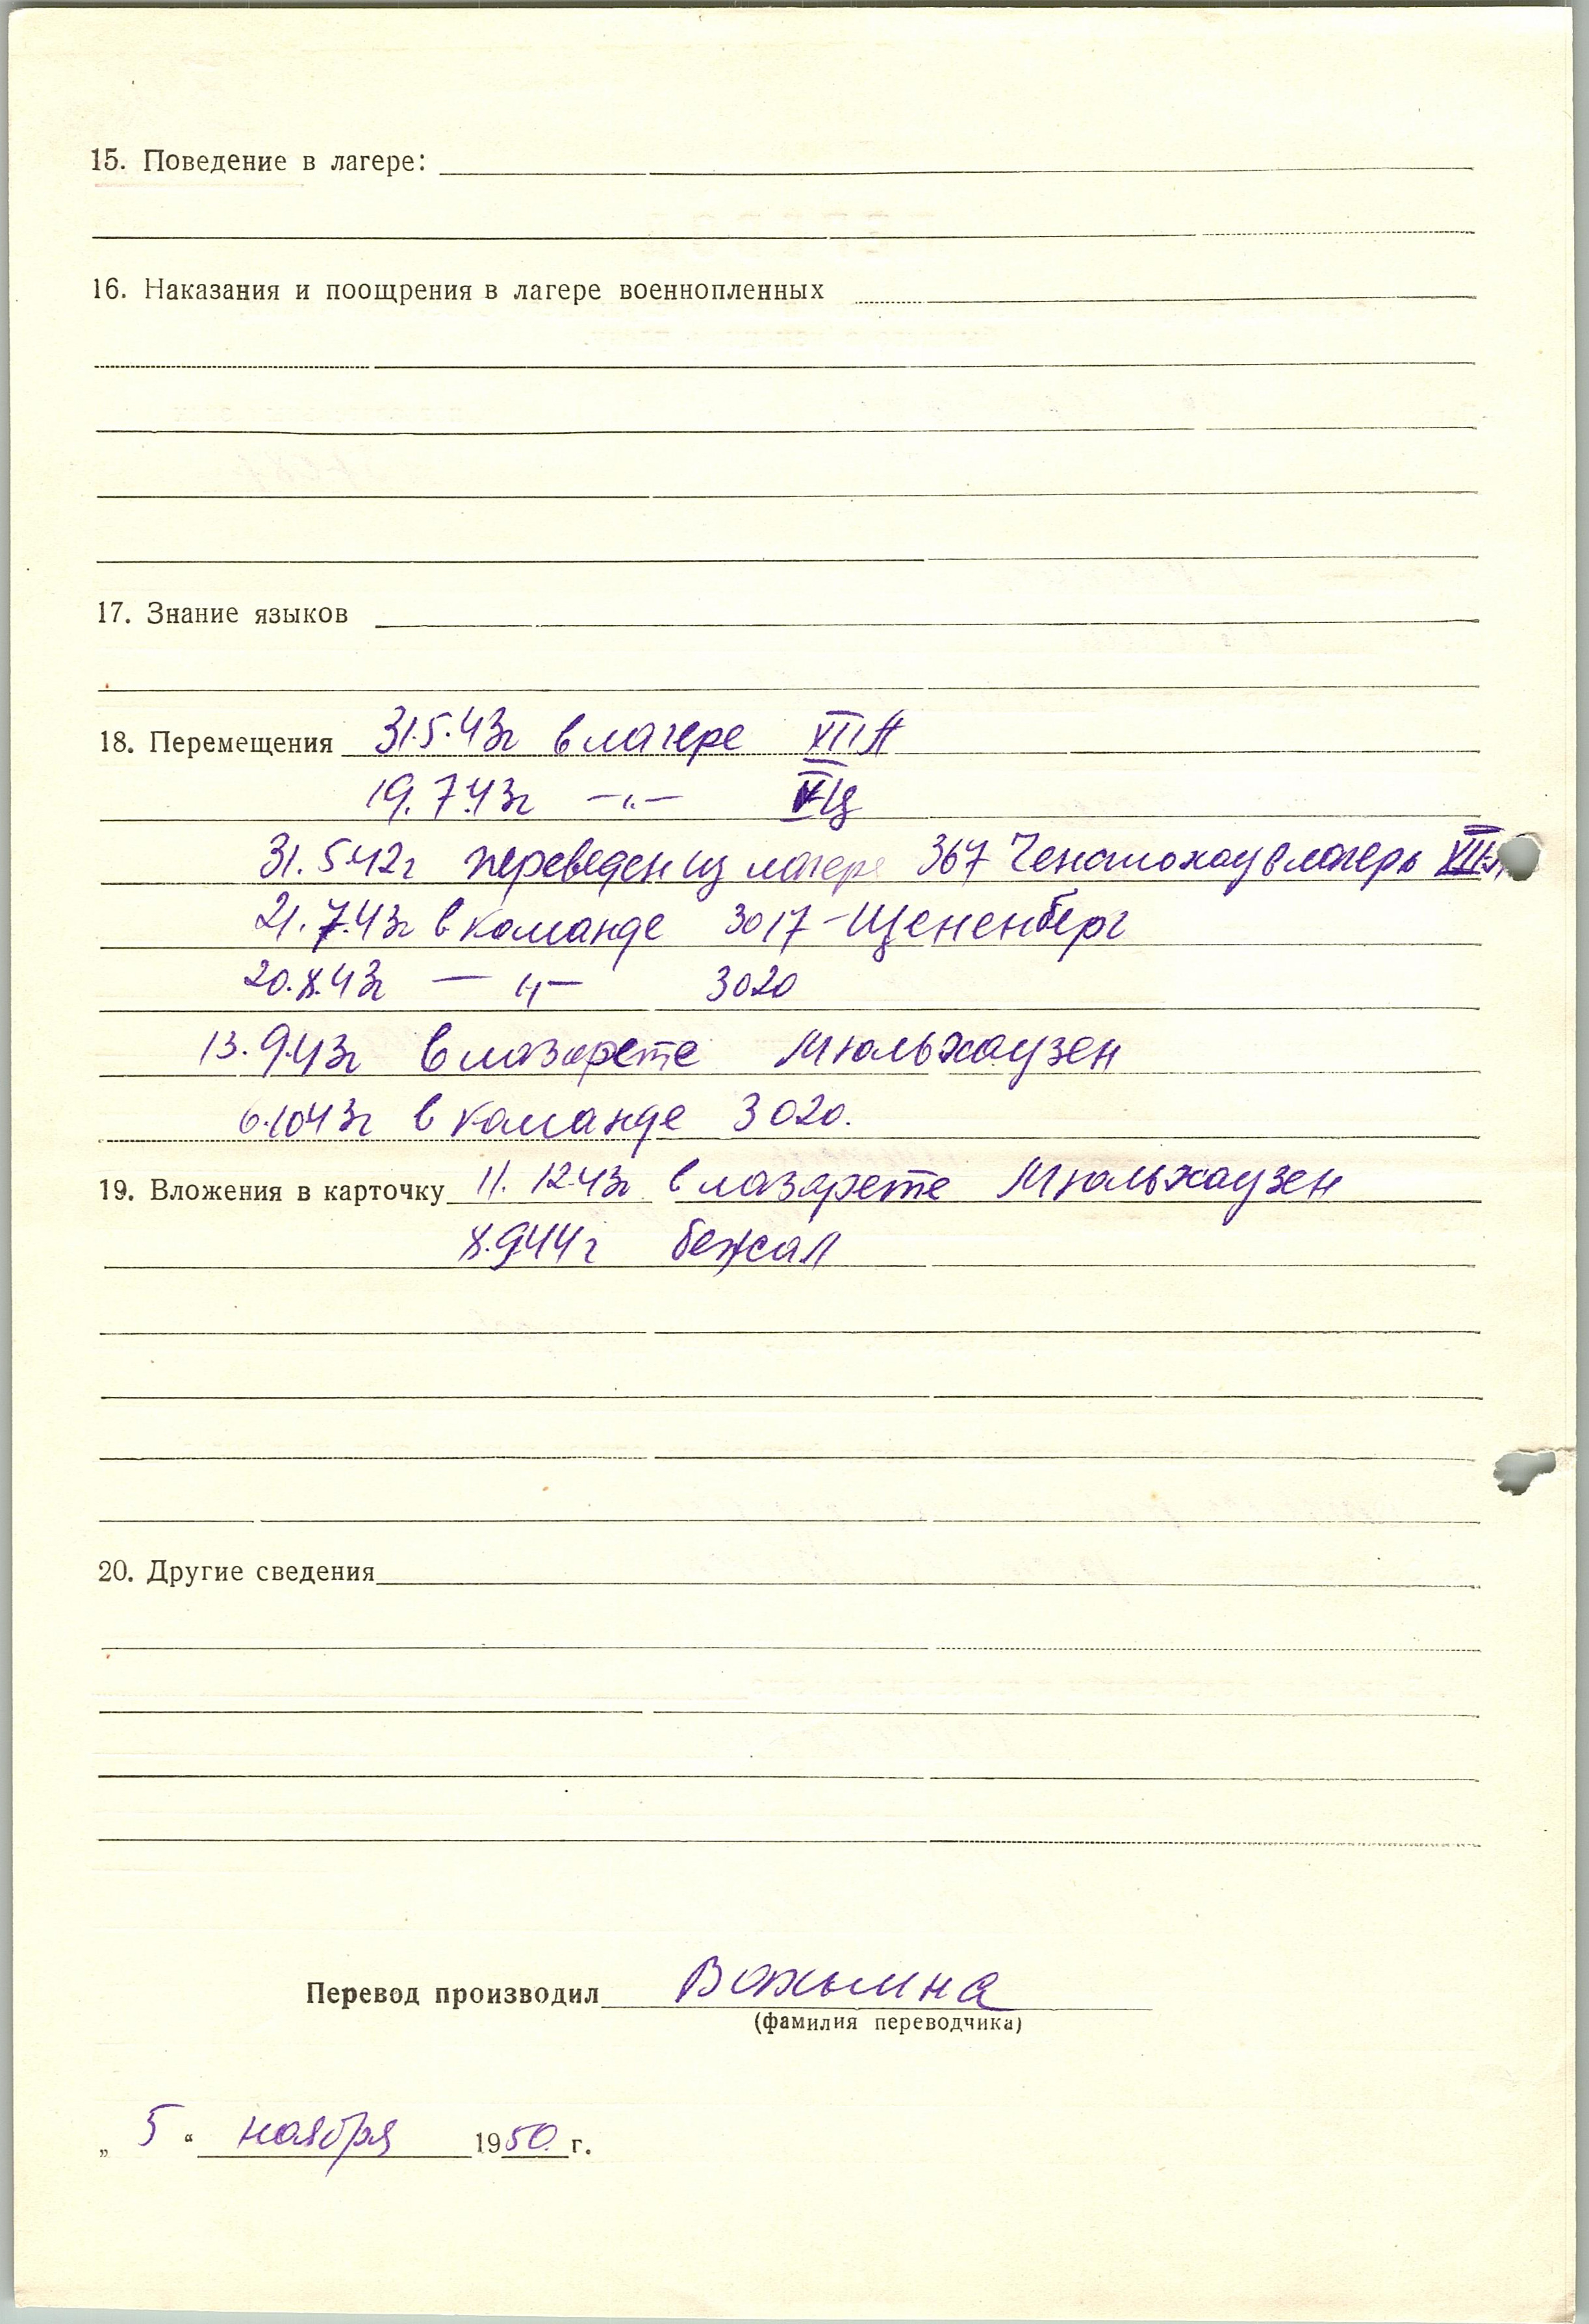 15. Поведение в лагере:
16. Наказания и поощрения в лагере военнопленных
17. Знание языков
18. Перемещения 31.5.43г в лагере XIII A
19.7.43г —"— V Ц
31.5.42г переведен из лагеря 367 Ченстохау в лагерь
21.7.43г в команде 3017 - Щененберг
20.8.43г —"— 3020
13.9.43г в лазарете Мюльхаузен
6.10.43г в команде 3020.
19. Вложения в карточку 11.12.43г в лазарете Мюльхаузен
8.9.44г бежал
20. Другие сведения
Перевод производил
(фамилия переводчика)
„ 5 “ ноября 1950 г.